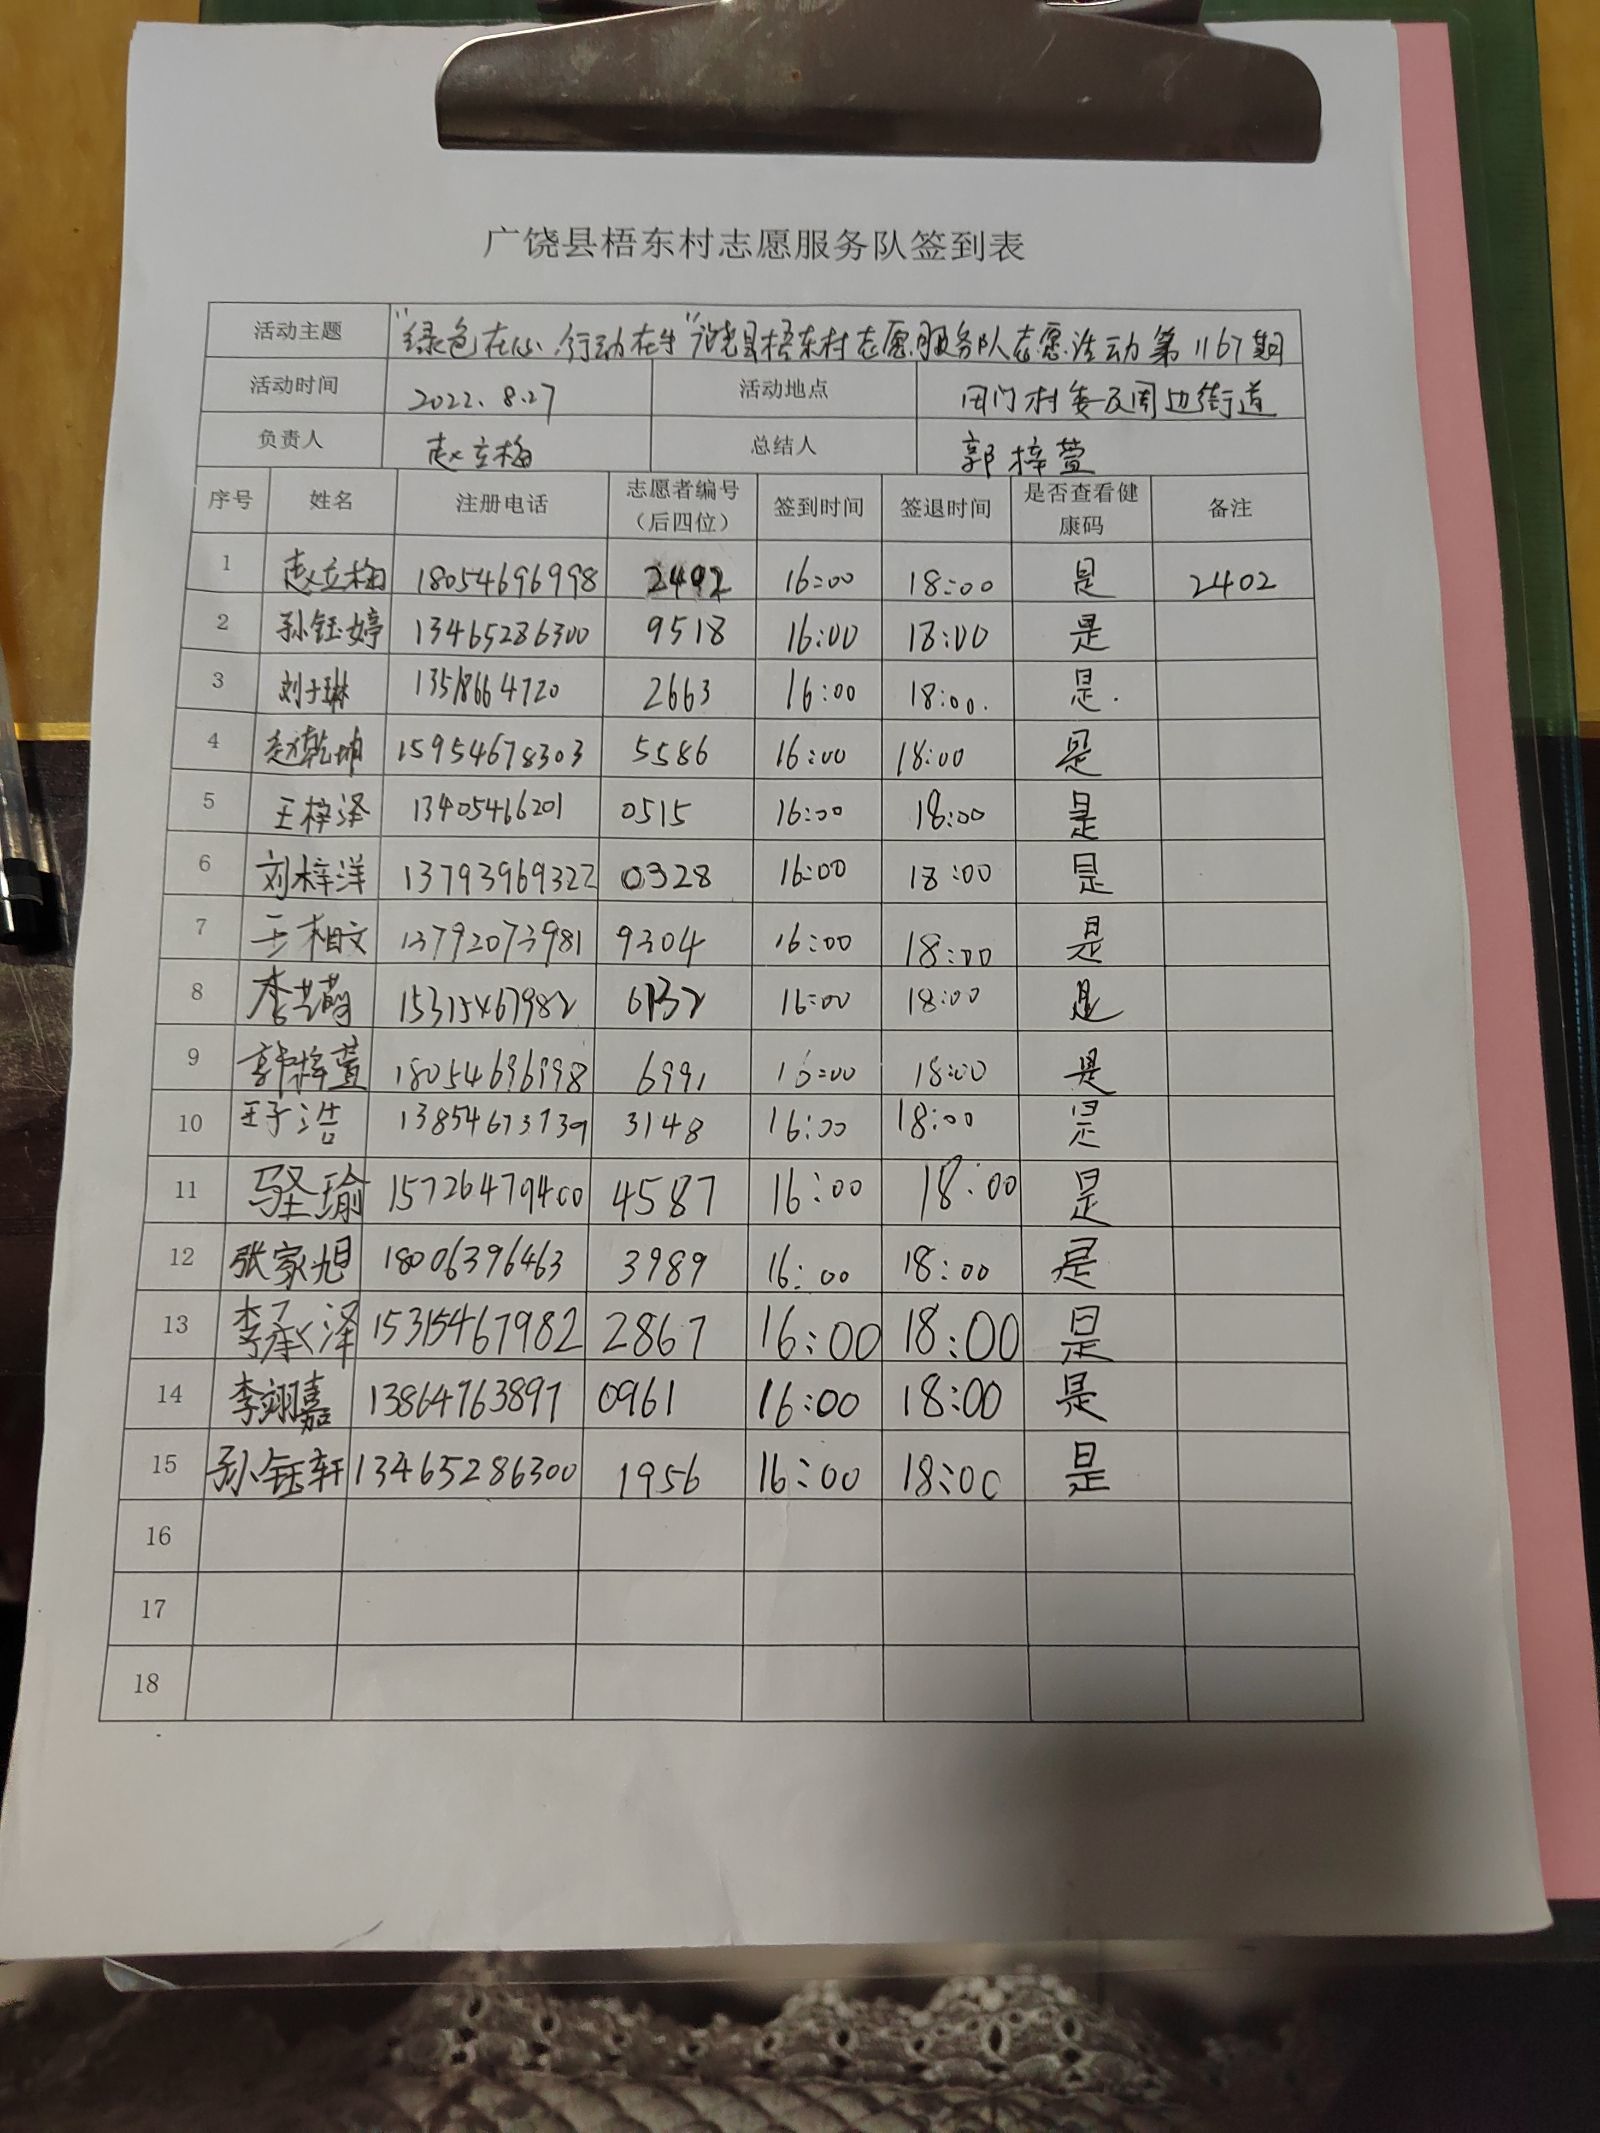 广饶县梧东村志愿服务队签到表
活动主题 "绿色在心、行动在手"广饶县梧东村志愿服务队志愿活动第1167期
活动时间 2022.8.27 活动地点 田门村委及周边街道
负责人 赵立梅 总结人 郭梓萱
序号 姓名 注册电话 志愿者编号（后四位） 签到时间 签退时间 是否查看健康码 备注
1 赵立梅 18054696998 2402 16:00 18:00 是 2402
2 孙钰婷 13465286300 9518 16:00 18:00 是
3 刘子琳 13518664720 2663 16:00 18:00. 是.
4 赵乾坤 15954678303 5586 16:00 18:00 是
5 王梓泽 13405466201 0515 16:00 18:00 是
6 刘梓洋 13793969322 0328 16:00 18:00 是
7 王相文 13792073981 9304 16:00 18:00 是
8 李芸萌 15315467982 6132 16:00 18:00 是
9 郭梓萱 18054696998 6991 16:00 18:00 是
10 王子浩 13854673739 3148 16:00 18:00 是
11 15726479400 4587 16:00 18:00 是
12 张家旭 18006396463 3989 16:00 18:00 是
13 李承泽 15315467982 2867 16:00 18:00 是
14 李翊嘉 13864763897 0961 16:00 18:00 是
15 孙钰轩 13465286300 1956 16:00 18:00 是
16
17
18